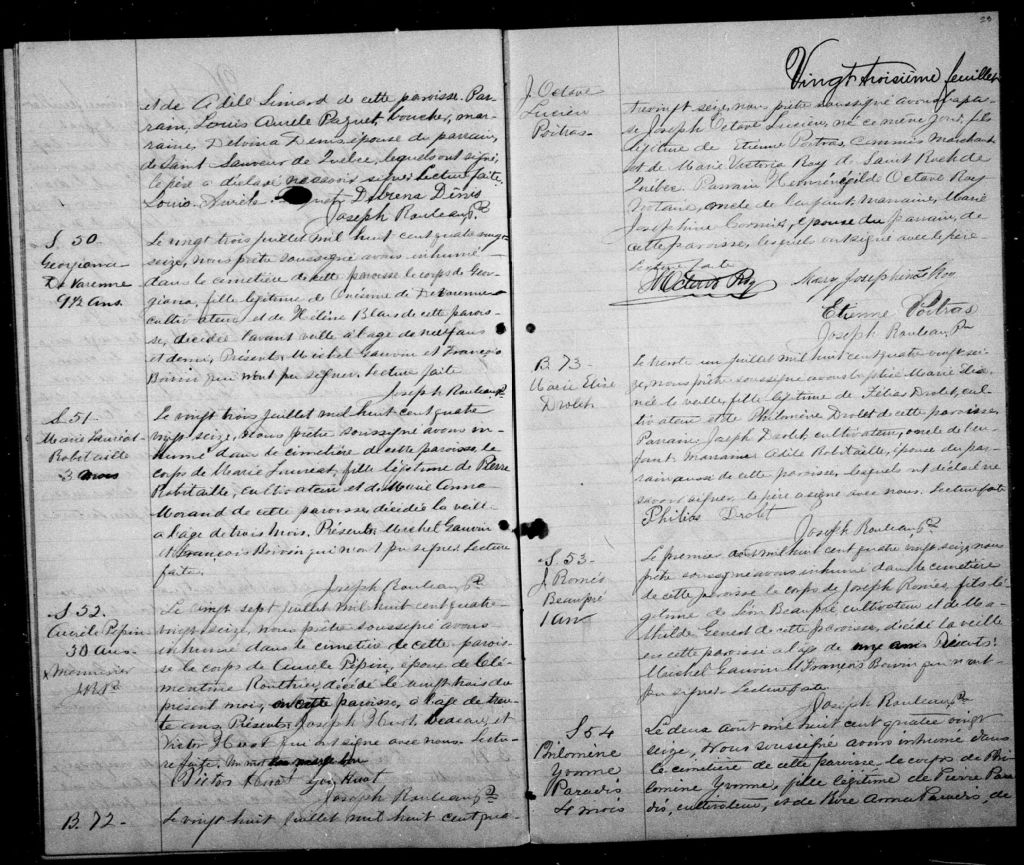 et de Adèle Simard de cette paroisse. Par-
rain, Louis Aurèle Paquet, boucher, mar-
raine, Delvina Denis épouse du parrain,
de Saint Sauveur de Québec, lesquels ont signé,
le père a déclaré ne savoir signer. Lecture faite.
Louis Aurèle Delvena Dénis
Joseph Rouleau, Ptre
S. 50.
Georgianna
De Varenne
9 1/2 Ans
Le vingt trois juillet mil huit cent quatre vingt
seize, nous prêtre soussigné avons inhumé
dans le cimetière de cette paroisse le corps de Geor-
giana, fille légitime de Onésime de De Varenne
cultivateur et de Hélène Blais de cette parois-
se, décédée l'avant veille à l'âge de neuf ans
et demi. Présents, Michel Gauvin et François
Boivin qui n'ont pu signer. Lecture faite
Joseph Rouleau, Ptre
S. 51.
Marie Lauréat
Robitaille
3 mois
Le vingt trois juillet mil huit cent quatre
vingt seize, nous prêtre soussigné avons in-
humé dans le cimetière de cette paroisse, le
corps de Marie Lauréat, fille légitime de Pierre
Robitaille, cultivateur et de Marie Anna
Morand de cette paroisse, décédée la veille
à l'âge de trois mois. Présents, Michel Gauvin
et François Boivin qui n'ont pu signer. Lecture
faite.
Joseph Rouleau, Ptre
S 52.
Aurèle Pépin
30 Ans
x Menuisier
Le vingt sept juillet mil huit cent quatre-
vingt seize, nous prêtre soussigné avons
inhumé dans le cimetière de cette parois-
se le corps de Aurèle Pépin, époux de Clé-
mentine Routhier, décédé le vingt trois du
présent mois, en cette paroisse, à l'âge de tren-
te ans. Présents, Joseph Huot, bedeau, et
Victor Huot qui ont signé avec nous. Lectu-
re faite. Un mot en marge bon
Victor Huot Huot
Joseph Rouleau, Ptre
B. 72.
Le vingt huit juillet mil huit cent qua-
23
Vingt troisième feuillet
J. Octave
Lucien
Poitras
tre vingt seize, nous prêtre soussigné avons bapti-
sé Joseph Octave Lucien, né ce même jour, fils
légitime de Etienne Poitras, Commis Marchand
et de Marie Victoria Roy de Saint Roch de
Québec. Parrain Herménégilde Octave Roy
Notaire, oncle de l'enfant, marraine, Marie
Joséphine épouse du parrain, de
cette paroisse, lesquels ont signé avec le père
Lecture faite
H Octave Roy Mary Josephine Roy
Etienne Poitras
Joseph Rouleau, Ptre
B. 73.
Marie Elise
Drolet
Le trente un juillet mil huit cent quatre vingt sei-
ze, nous prêtre soussigné avons baptisé Marie Elise,
née la veille, fille légitime de Félias Drolet, cul-
tivateur et de Philomène Drolet de cette paroisse.
Parrain Joseph Drolet, cultivateur, oncle de l'en-
fant, Marraine Adèle Robitaille, épouse du par-
rain aussi de cette paroisse, lesquels ont déclaré ne
savoir signer, le père a signé avec nous. Lecture faite
Philias Drolet
Joseph Rouleau, Ptre
S. 53.
J. Roméo
Beaupré
1 an
Le premier août mil huit cent quatre vingt seize, nous
prêtre soussigné avons inhumé dans le cimetière
de cette paroisse le corps de Joseph Roméo, fils lé-
gitime de Léon Beaupré cultivateur et de Ma-
thilde Genest de cette paroisse, décédé la veille
en cette paroisse à l'âge de un an. Présents:
Michel Gauvin et François Boivin qui n'ont
pu signer. Lecture faite
Joseph Rouleau, Ptre
S. 54
Philomène
Yvonne
Paradis
4 mois
Le deux août mil huit cent quatre vingt
seize, Nous soussigné avons inhumé dans
le cimetière de cette paroisse, le corps de Phi-
lomène Yvonne, fille légitime de Pierre Para-
dis, cultivateur, et de Rose Anna Paradis, de